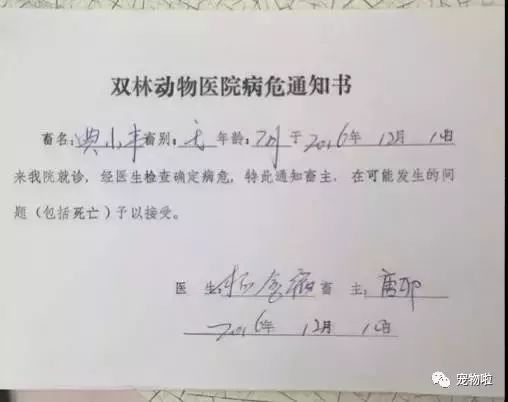 双林动物医院病危通知书
畜名:典小丰畜别:犬年龄:2月于2016年 12月 1日
来我院就诊，经医生检查确定病危，特此通知畜主，在可能发生的问
题(包括死亡)予以接受。
医 生: 畜 主:
2016年 12月 1日
宠物啦